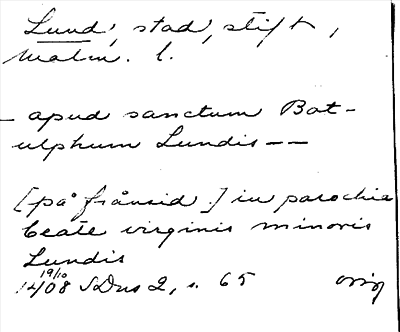 Lund, stad, stift,
Malm. l.
- apud sanctum Bot-
ulphum Lundis --
[på frånsid.] in parochia
beate virginis minoris
Lundis
19/10
1408 SDns 2, s. 65 orig